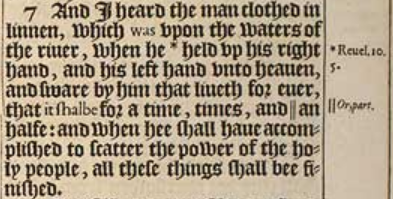 7 And I heard the man clothed in
linnen, which was vpon the waters of
the riuer, when he * held vp his right
hand, and his left hand vnto heauen,
and sware by him that liueth foꝛ euer,
that it ſhalbe foꝛ a time, times, and || an
halfe: and when hee ſhall haue accom⸗
pliſhed to ſcatter the power of the ho⸗
ly people, all theſe things ſhall bee fi⸗
niſhed.
* Reuel. 10.
5.
|| Or, part.